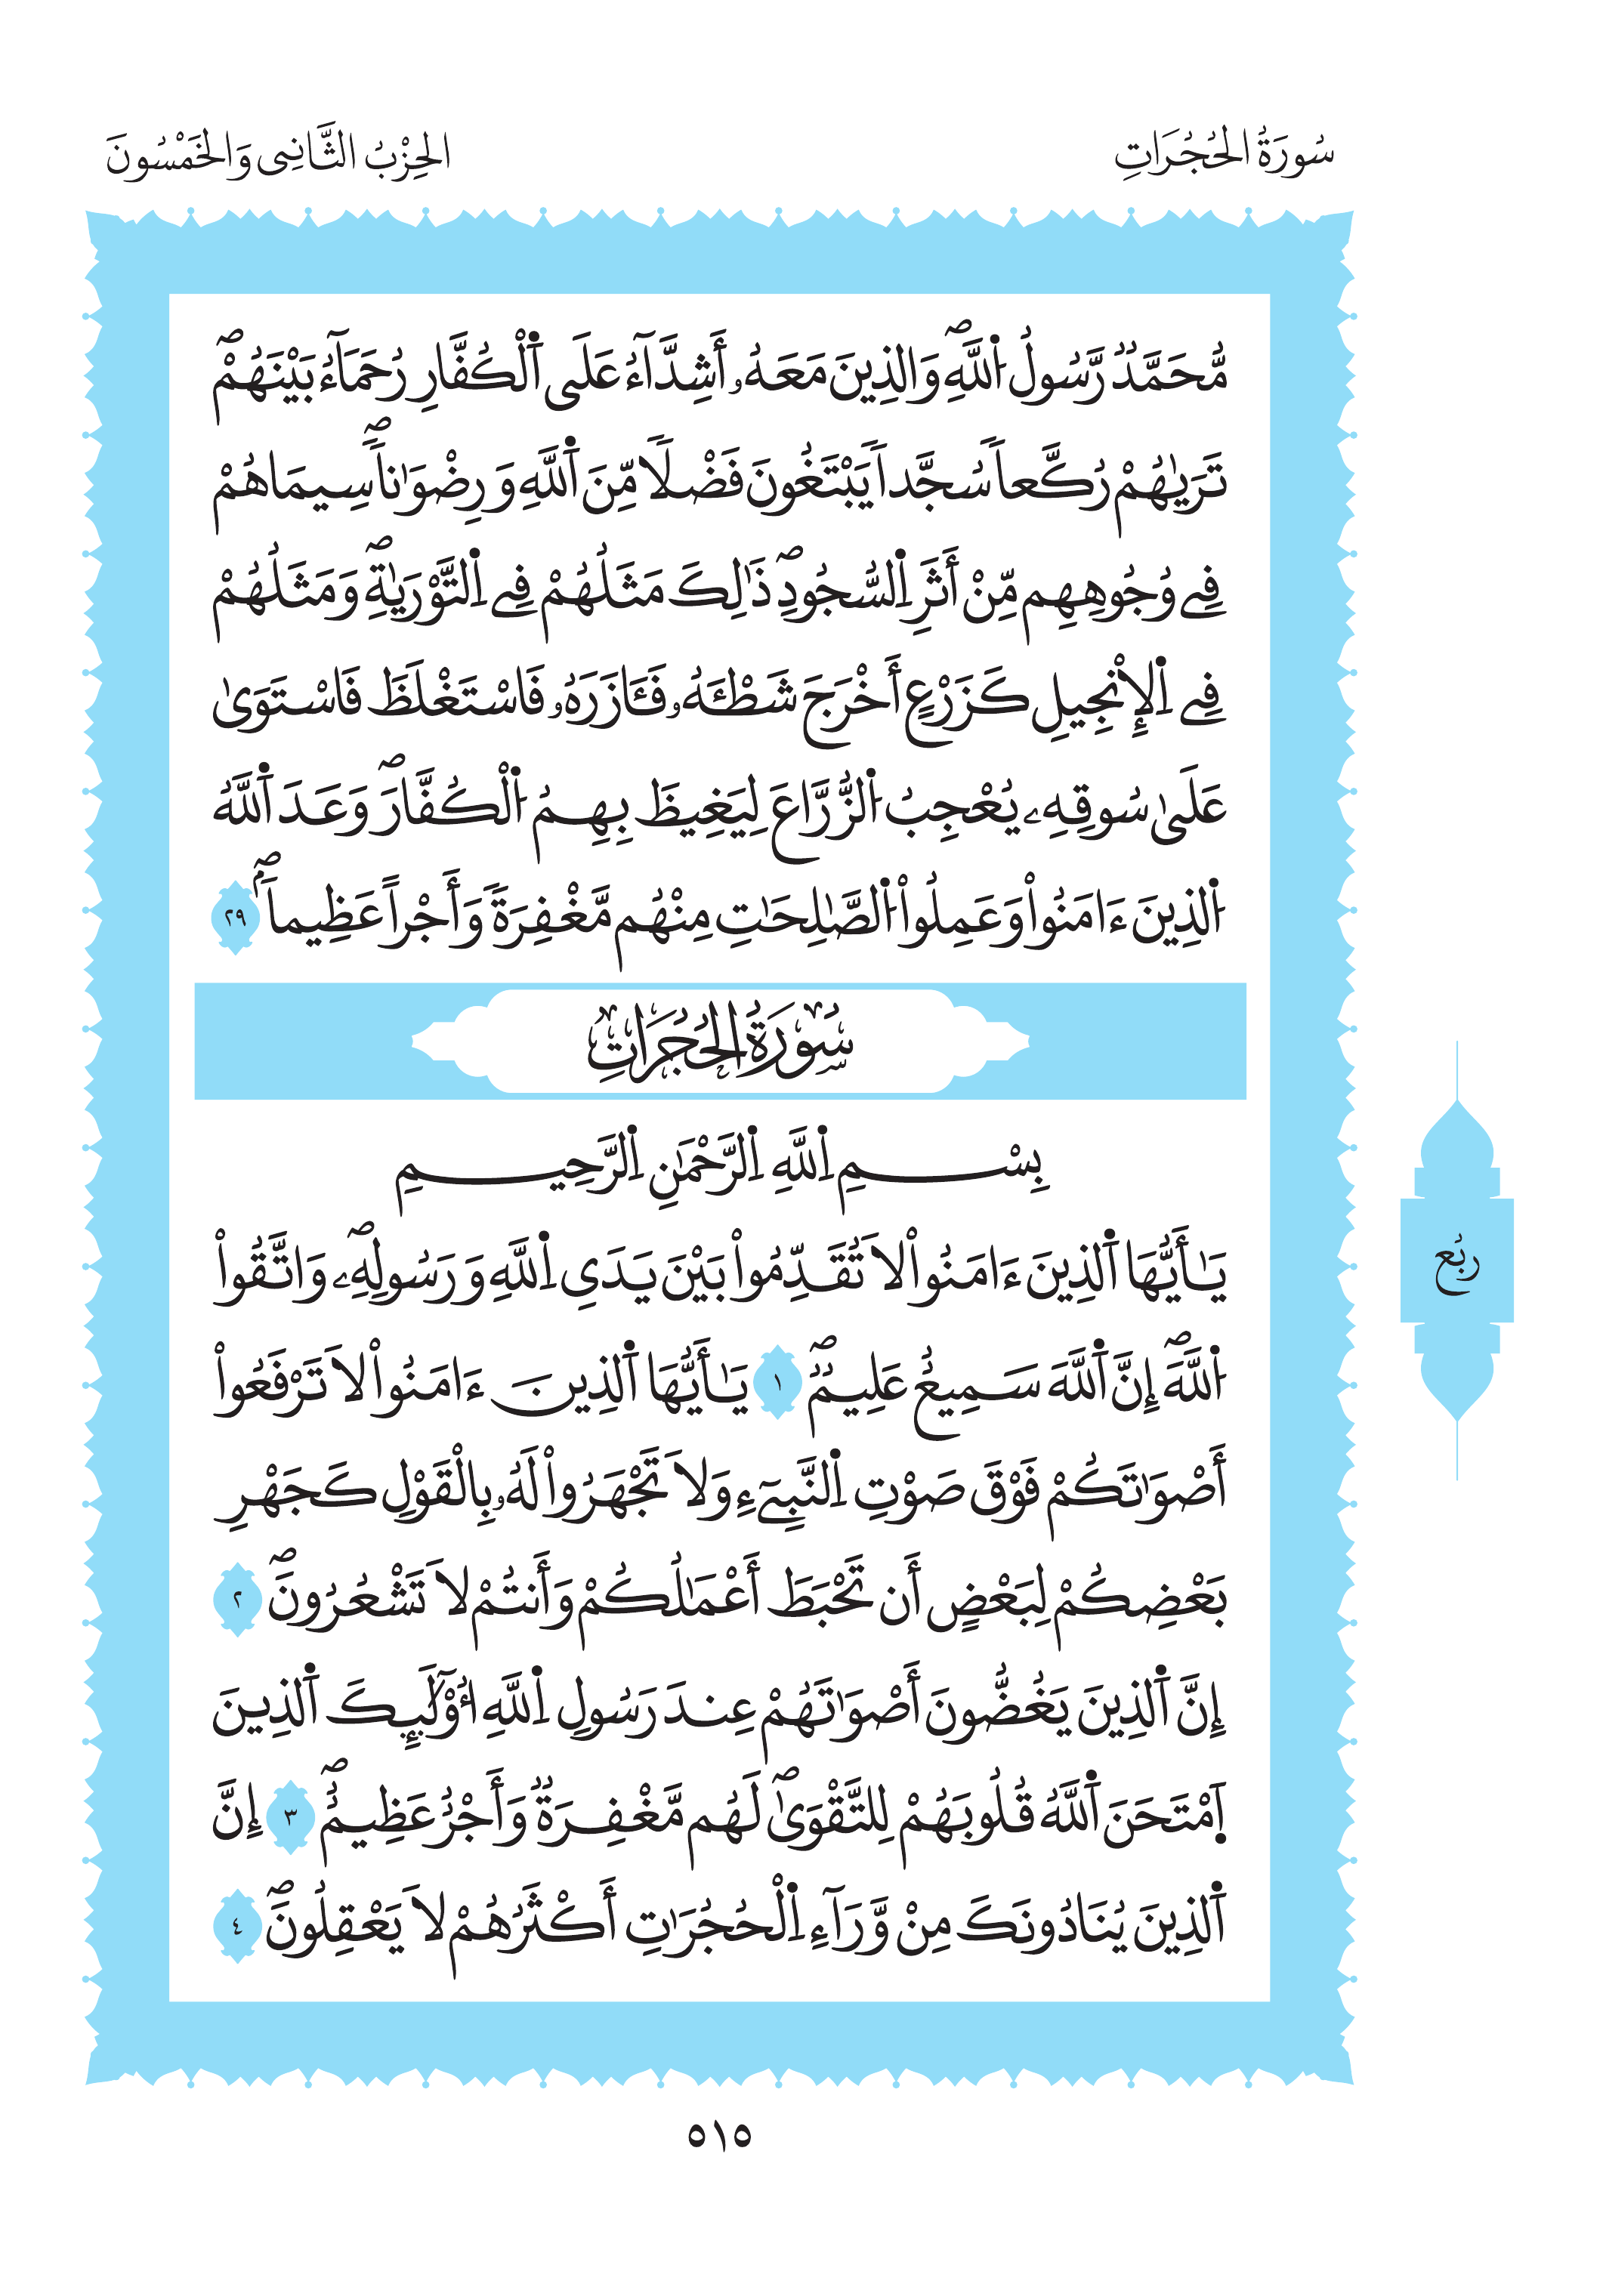 سُورَةُ الحُجُرَاتِ
الحِزْبُ الثَّانِى وَالخَمْسُونَ
مُّحَمَّدٞ رَّسُولُ اُ۬للَّهِۖ وَالذِينَ مَعَهُۥٓ أَشِدَّآءُ عَلَى اَ۬لْكُفَّارِ رُحَمَآءُ بَيْنَهُمْۖ
تَرَىٰهُمْ رُكَّعاٗ سُجَّداٗ يَبْتَغُونَ فَضْلاٗ مِّنَ اَ۬للَّهِ وَرِضْوَٰناٗۖ سِيمَاهُمْ
فِے وُجُوهِهِم مِّنْ أَثَرِ اِ۬لسُّجُودِۖ ذَٰلِكَ مَثَلُهُمْ فِے اِ۬لتَّوْرَيٰةِۖ وَمَثَلُهُمْ
فِے اِ۬لِانْجِيلِ كَزَرْعٍ أَخْرَجَ شَطْـَٔهُۥ فَـَٔازَرَهُۥ فَاسْتَغْلَظَ فَاسْتَوَىٰ
عَلَىٰ سُوقِهِۦ يُعْجِبُ اُ۬لزُّرَّاعَ لِيَغِيظَ بِهِمُ اُ۬لْكُفَّارَۖ وَعَدَ اَ۬للَّهُ
اُ۬لذِينَ ءَامَنُواْ وَعَمِلُواْ اُ۬لصَّٰلِحَٰتِ مِنْهُم مَّغْفِرَةٗ وَأَجْراً عَظِيماٗۖ ٢٩
سُورَةُ الحُجُرَاتِ
بِسْمِ اِ۬للَّهِ اِ۬لرَّحْمَٰنِ اِ۬لرَّحِيمِ
يَٰٓأَيُّهَا اَ۬لذِينَ ءَامَنُواْ لَا تُقَدِّمُواْ بَيْنَ يَدَيِ اِ۬للَّهِ وَرَسُولِهِۦۖ وَاتَّقُواْ
اُ۬للَّهَۖ إِنَّ اَ۬للَّهَ سَمِيعٌ عَلِيمٞۖ ١ يَٰٓأَيُّهَا اَ۬لذِينَ ءَامَنُواْ لَا تَرْفَعُواْ
أَصْوَٰتَكُمْ فَوْقَ صَوْتِ اِ۬لنَّبِيٓءِ وَلَا تَجْهَرُواْ لَهُۥ بِالْقَوْلِ كَجَهْرِ
بَعْضِكُمْ لِبَعْضٍ أَن تَحْبَطَ أَعْمَٰلُكُمْ وَأَنتُمْ لَا تَشْعُرُونَۖ ٢
إِنَّ اَ۬لذِينَ يَغُضُّونَ أَصْوَٰتَهُمْ عِندَ رَسُولِ اِ۬للَّهِ أُوْلَٰٓئِكَ اَ۬لذِينَ
اَ۪مْتَحَنَ اَ۬للَّهُ قُلُوبَهُمْ لِلتَّقْوَىٰۖ لَهُم مَّغْفِرَةٞ وَأَجْرٌ عَظِيمٌۖ ٣ إِنَّ
اَ۬لذِينَ يُنَادُونَكَ مِنْ وَّرَآءِ اِ۬لْحُجُرَٰتِ أَكْثَرُهُمْ لَا يَعْقِلُونَۖ ٤
ربُع
٥١٥